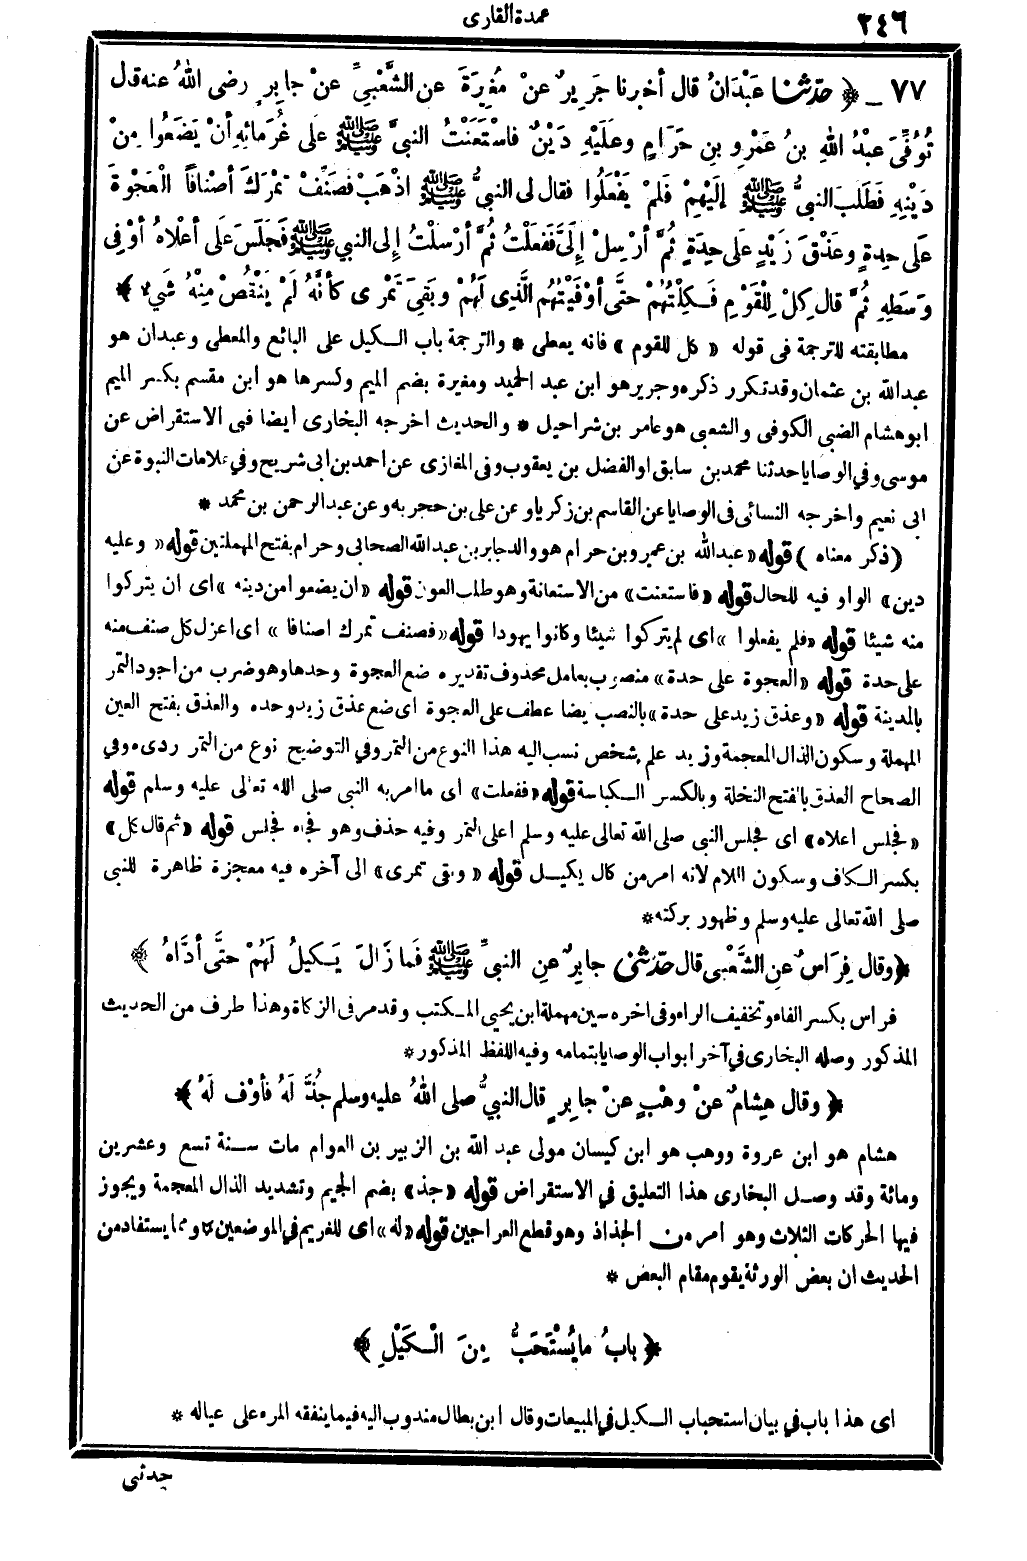 ٢٤٦
عمدة القارى
٧٧ _ ﴿ حدّثنا عَبْدَانُ قال أخبرنا جَرِيرٌ عنْ مُغِيرَةَ عنِ الشَّعْبِيِّ عنْ جابِرٍ رضى اللهُ عنه قال
تُوُفِّىَ عبْدُ اللهِ بنُ عَمْرِو بنِ حَرَامٍ وعلَيْهِ دَيْنٌ فاسْتَعَنْتُ النبيَّ ﷺ على غُرَمائِهِ أنْ يَضَعُوا مِنْ
دَيْنِهِ فَطَلَبَ النبيُّ ﷺ إلَيْهِمْ فَلَمْ يَفْعَلُوا فقال لى النبيُّ ﷺ اذْهَبْ فَصَنِّفْ تمْرَكَ أصْنافاً العَجْوةَ
عَلَى حِدةٍ وعَذْقَ زَيْدٍ عَلَى حِدَةٍ ثُمَّ أرْسِلْ إلَىَّ فَفَعَلْتُ ثُمَّ أرْسَلْتُ إلى النبي ﷺ فَجَلَسَ عَلَى أعْلاهُ أوْ فِى
وَسَطِهِ ثُمَّ قال كِلْ لِلْقَوْمِ فَكِلْتُهُمْ حتَّى أوْفَيْتُهُم الَّذِى لَهُمْ وبَقِىَ تَمْرِى كأنَّهُ لَمْ يَنْقُصْ مِنْهُ شَىْءٌ ﴾
مطابقته للترجمة فى قوله « كل للقوم » فانه يعطى * والترجمة باب الكيل على البائع والمعطى وعبدان هو
عبدالله بن عثمان وقد تكرر ذكره وجرير هو ابن عبد الحميد ومغيرة بضم الميم وكسرها هو ابن مقسم بكسر الميم
ابو هشام الضبى الكوفى والشعبى هو عامر بن شراحيل * والحديث اخرجه البخارى أيضا فى الاستقراض عن
موسى وفي الوصايا حدثنا محمد بن سابق او الفضل بن يعقوب وفى المغازى عن احمد بن ابى شريح وفي علامات النبوة عن
ابى نعيم واخرجه النسائى فى الوصايا عن القاسم بن زكريا وعن على بن حجر به وعن عبد الرحمن بن محمد *
(ذكر معناه) قوله «عبدالله بن عمرو بن حرام هو والد جابر بن عبدالله الصحابى وحرام بفتح المهملتين قوله «وعليه
دين» الواو فيه للحال قوله «فاستعنت» من الاستعانة وهو طلب العون قوله «ان يضعوا من دينه » اى ان يتركوا
منه شيئا قوله «فلم يفعلوا » اى لم يتركوا شيئا وكانوا يهودا قوله «فصنف تمرك اصنافا » اى اعزل كل صنف منه
على حدة قوله «العجوة على حدة» منصوب بعامل محذوف تقديره ضع العجوة وحدها وهو ضرب من اجود التمر
بالمدينة قوله «وعذق زيد على حدة» بالنصب يضا عطف على العجوة اى ضع عذق زيد وحده والعذق بفتح العين
المهملة وسكون الذال المعجمة وزيد علم شخص نسب اليه هذا النوع من التمر وفي التوضيح نوع من التمر ردىء وفي
الصحاح العذق بالفتح النخلة وبالكسر الكباسة قوله «ففعلت» اى ما امر به النبى صلى الله تعالى عليه وسلم قوله
«فجلس اعلاه» اى فجلس النبى صلى الله تعالى عليه وسلم اعلى التمر وفيه حذف وهو فجاء فجلس قوله «ثم قال كل»
بكسر الكاف وسكون اللام لانه امر من كال يكيل قوله «وبقى تمرى» الى آخره فيه معجزة ظاهرة للنبى
صلى الله تعالى عليه وسلم وظهور بركته*
﴿وقال فِرَاسٌ عنِ الشَّعْبِى قال حدّثنى جابِرٌ عنِ النبيِّ ﷺ فَما زَالَ يَكيلُ لَهُمْ حتَّى أدَّاهُ ﴾
فراس بكسر الفاء وتخفيف الراء وفى اخره سين مهملة ابن يحيى المكتب وقد مر فى الزكاة وهذا طرف من الحديث
المذكور وصله البخارى في آخر ابواب الوصايا بتمامه وفيه اللفظ المذكور*
﴿ وقال هِشامٌ عنْ وهْبٍ عنْ جابِرٍ قال النبيُّ صلى اللهُ عليه وسلم جُذَّ لَهُ فأوْفِ لَهُ ﴾
هشام هو ابن عروة ووهب هو ابن كيسان مولى عبد الله بن الزبير بن العوام مات سنة تسع وعشرين
ومائة وقد وصل البخارى هذا التعليق في الاستقراض قوله «جذ» بضم الجيم وتشديد الذال المعجمة ويجوز
فيها الحركات الثلاث وهو امر من الجذاذ وهو قطع العراجين قوله «له» اى للغريم في الموضعين * ومما يستفاد من
الحديث ان بعض الورثة يقوم مقام البعض *
﴿ بابُ ما يُسْتَحَبُّ مِنَ الْكَيْلِ ﴾
اى هذا باب في بيان استحباب الكيل في المبيعات وقال ابن بطال مندوب اليه فيما ينفقه المرء على عياله *
حدثنى